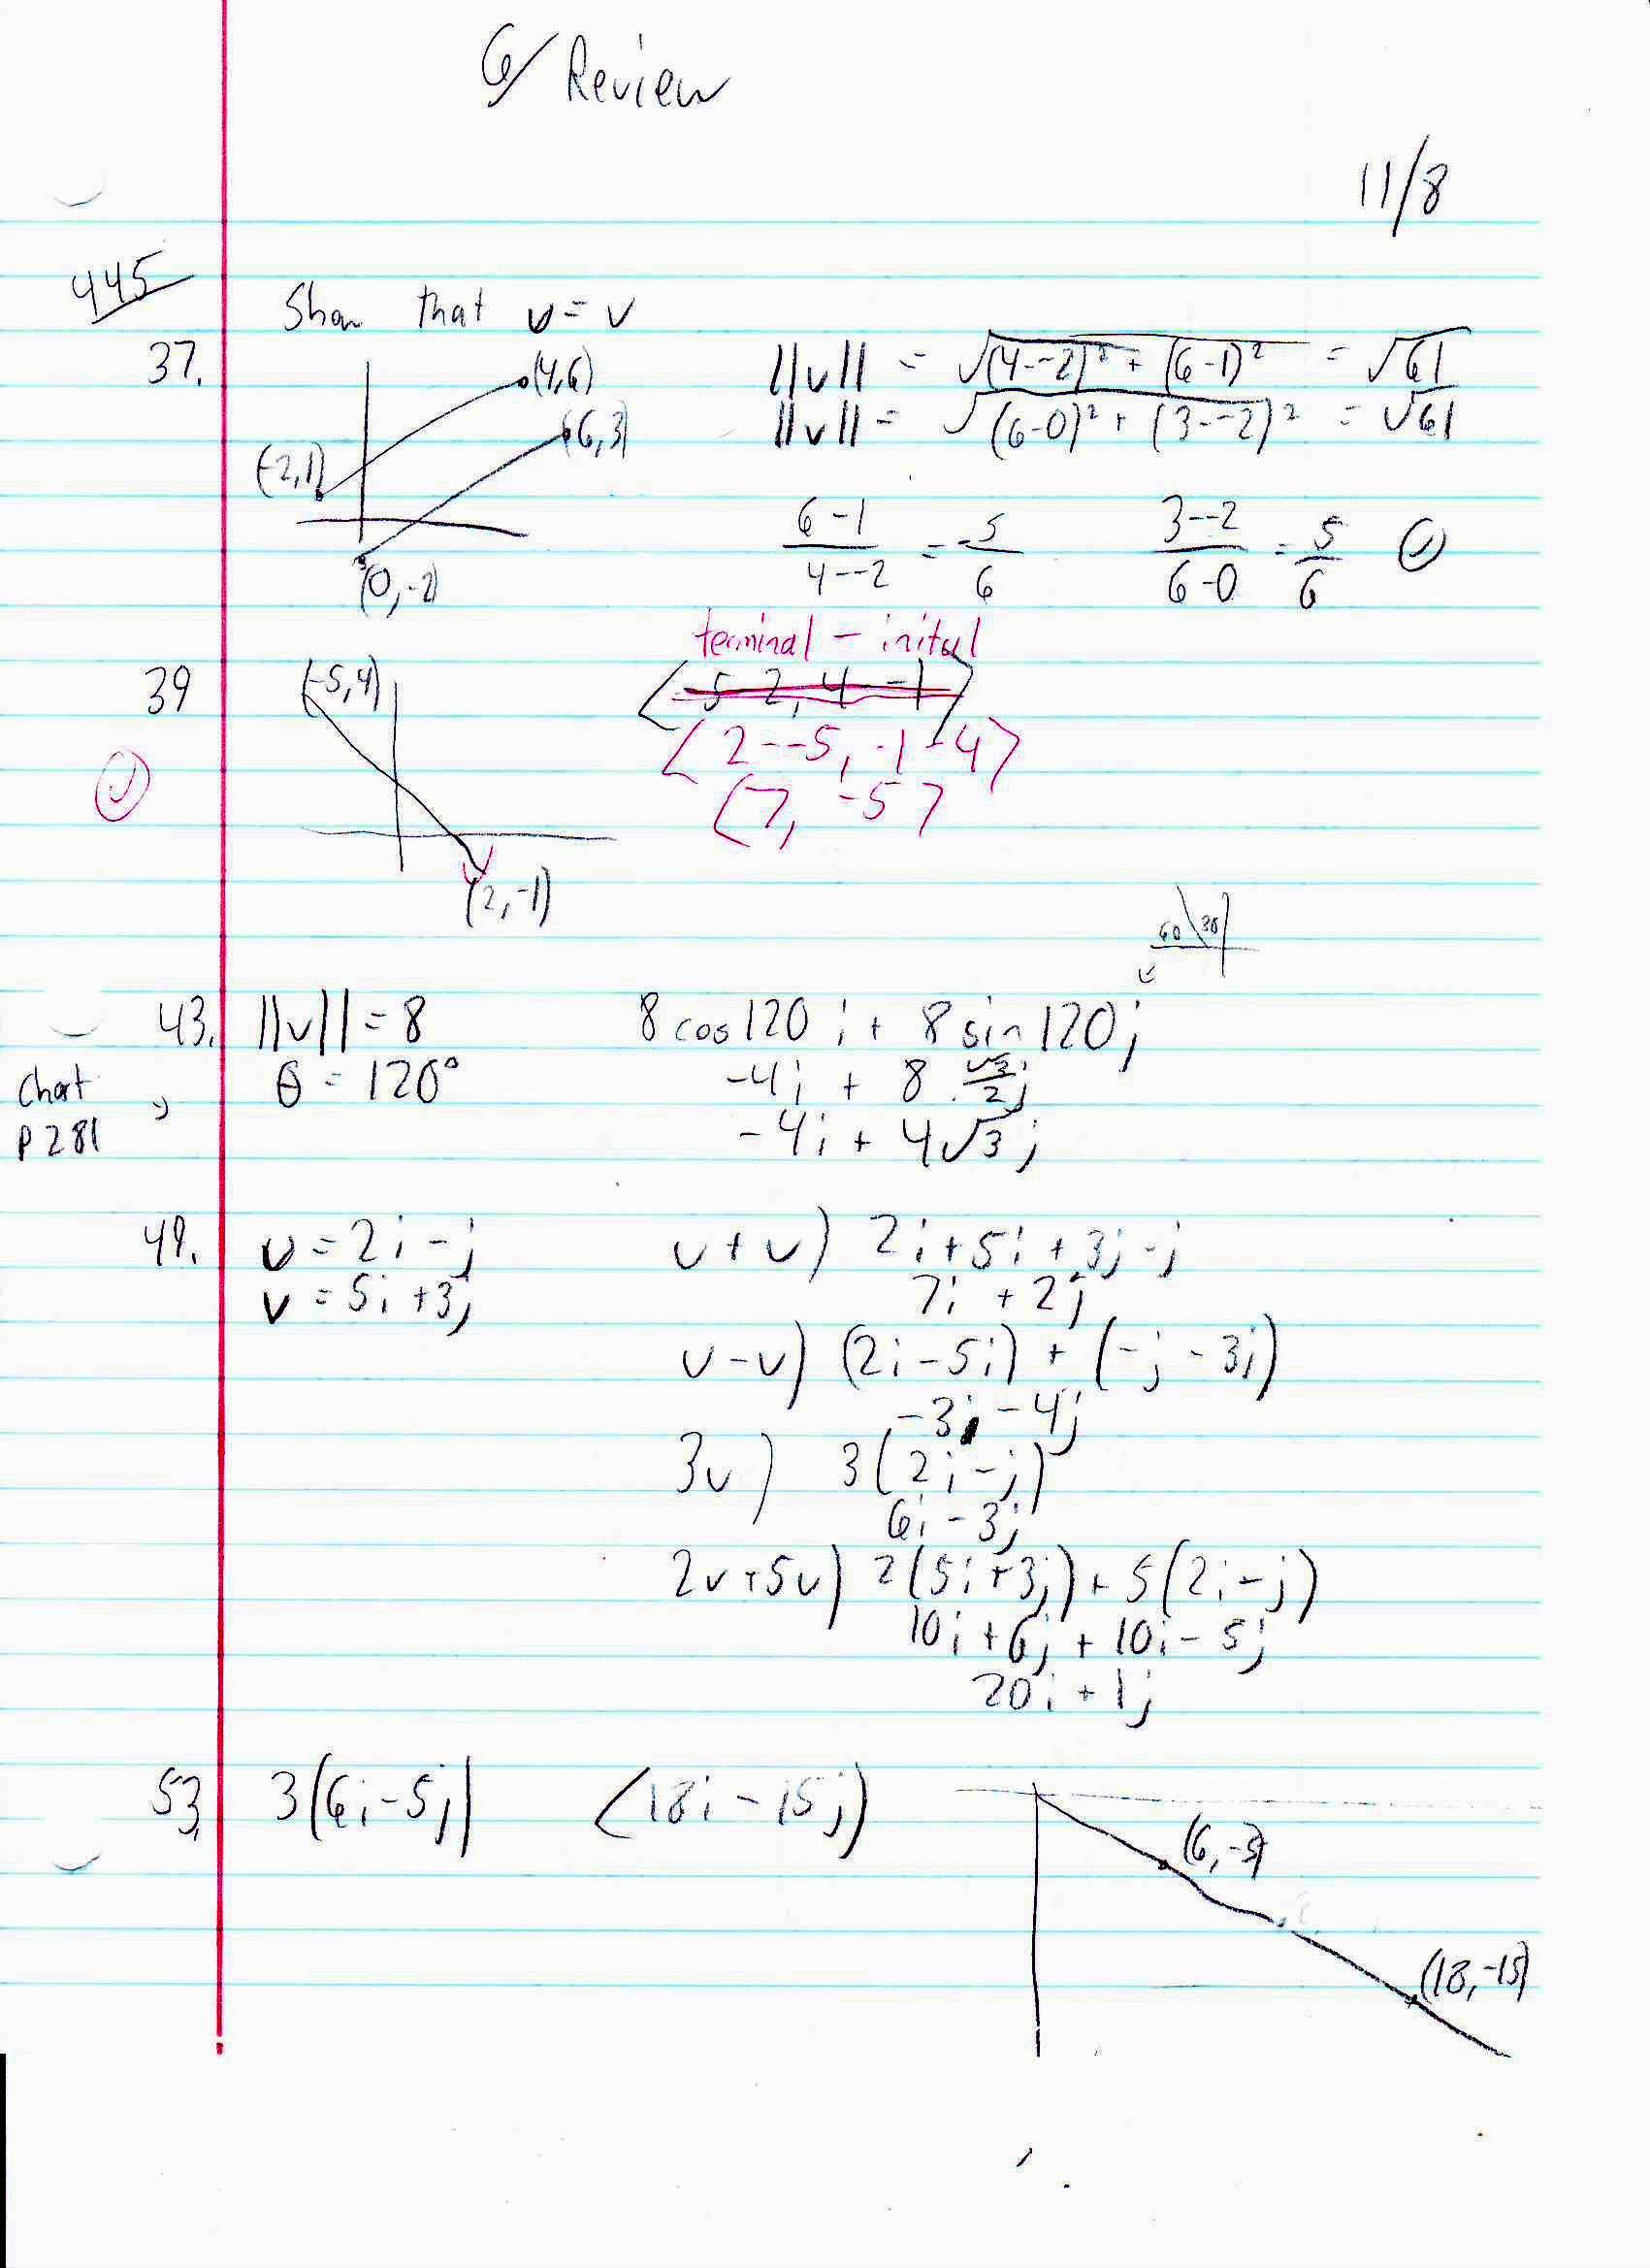 6/ Review
11/8
445
Show that u = v
37.
(4,6)
(6,3)
(-2,1)
(0,-2)
||u|| = √(4--2)² + (6-1)² = √61
||v|| = √(6-0)² + (3--2)² = √61
6-1/4--2 = 5/6 3--2/6-0 = 5/6
terminal - inital
39 (-5,4) <-5-2, 4--1>
<2--5, -1-4>
<7, -5>
(2,-1)
60 30
43. ||v|| = 8 8 cos 120 i + 8 sin 120 j
Chart θ = 120° -4i + 8 · √3/2 j
p 281 -4i + 4√3 j
49. u = 2i - j u + v) 2i + 5i + 3j - j
v = 5i + 3j 7i + 2j
u - v) (2i - 5i) + (-j - 3j)
-3i - 4j
3u) 3(2i - j)
6i - 3j
2v + 5u) 2(5i + 3j) + 5(2i - j)
10i + 6j + 10i - 5j
20i + 1j
53. 3(6i - 5j) <18i - 15j)
(6,-5)
(18,-15)